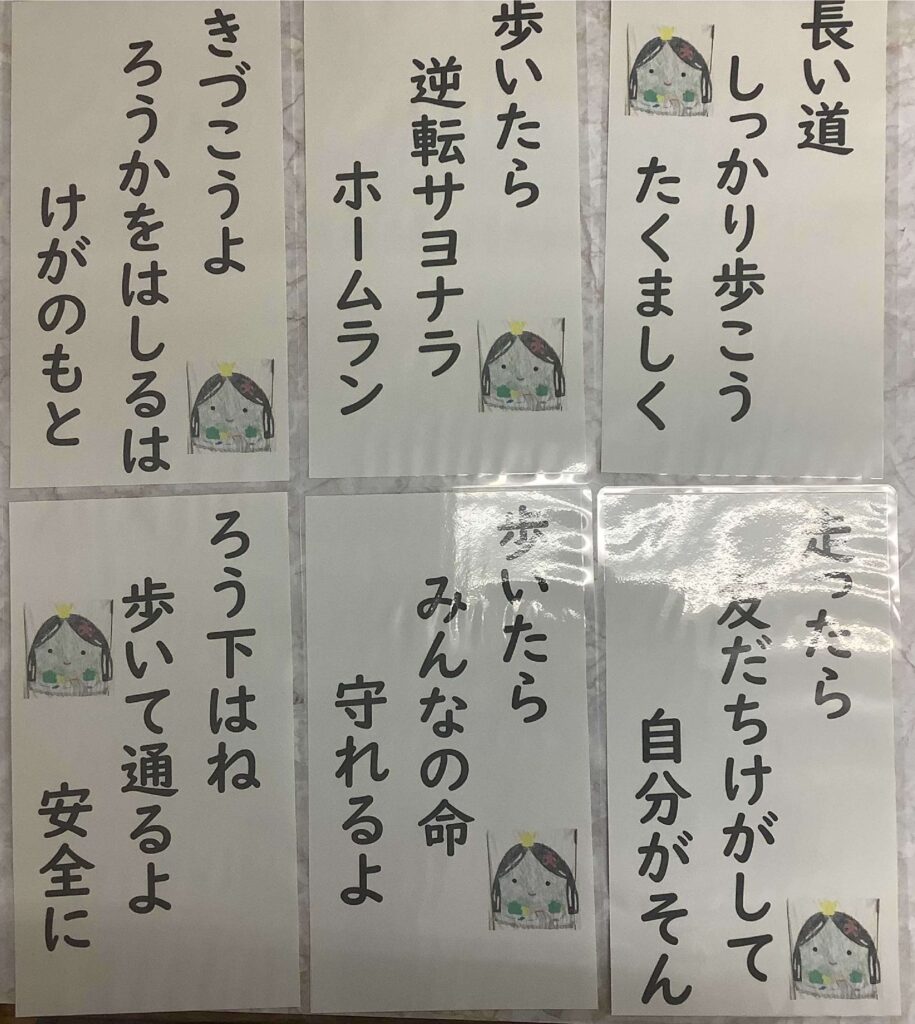 長い道
しっかり歩こう
たくましく
歩いたら
逆転サヨナラ
ホームラン
きづこうよ
ろうかをはしるは
けがのもと
走ったら
友だちけがして
自分がそん
歩いたら
みんなの命
守れるよ
ろう下はね
歩いて通るよ
安全に